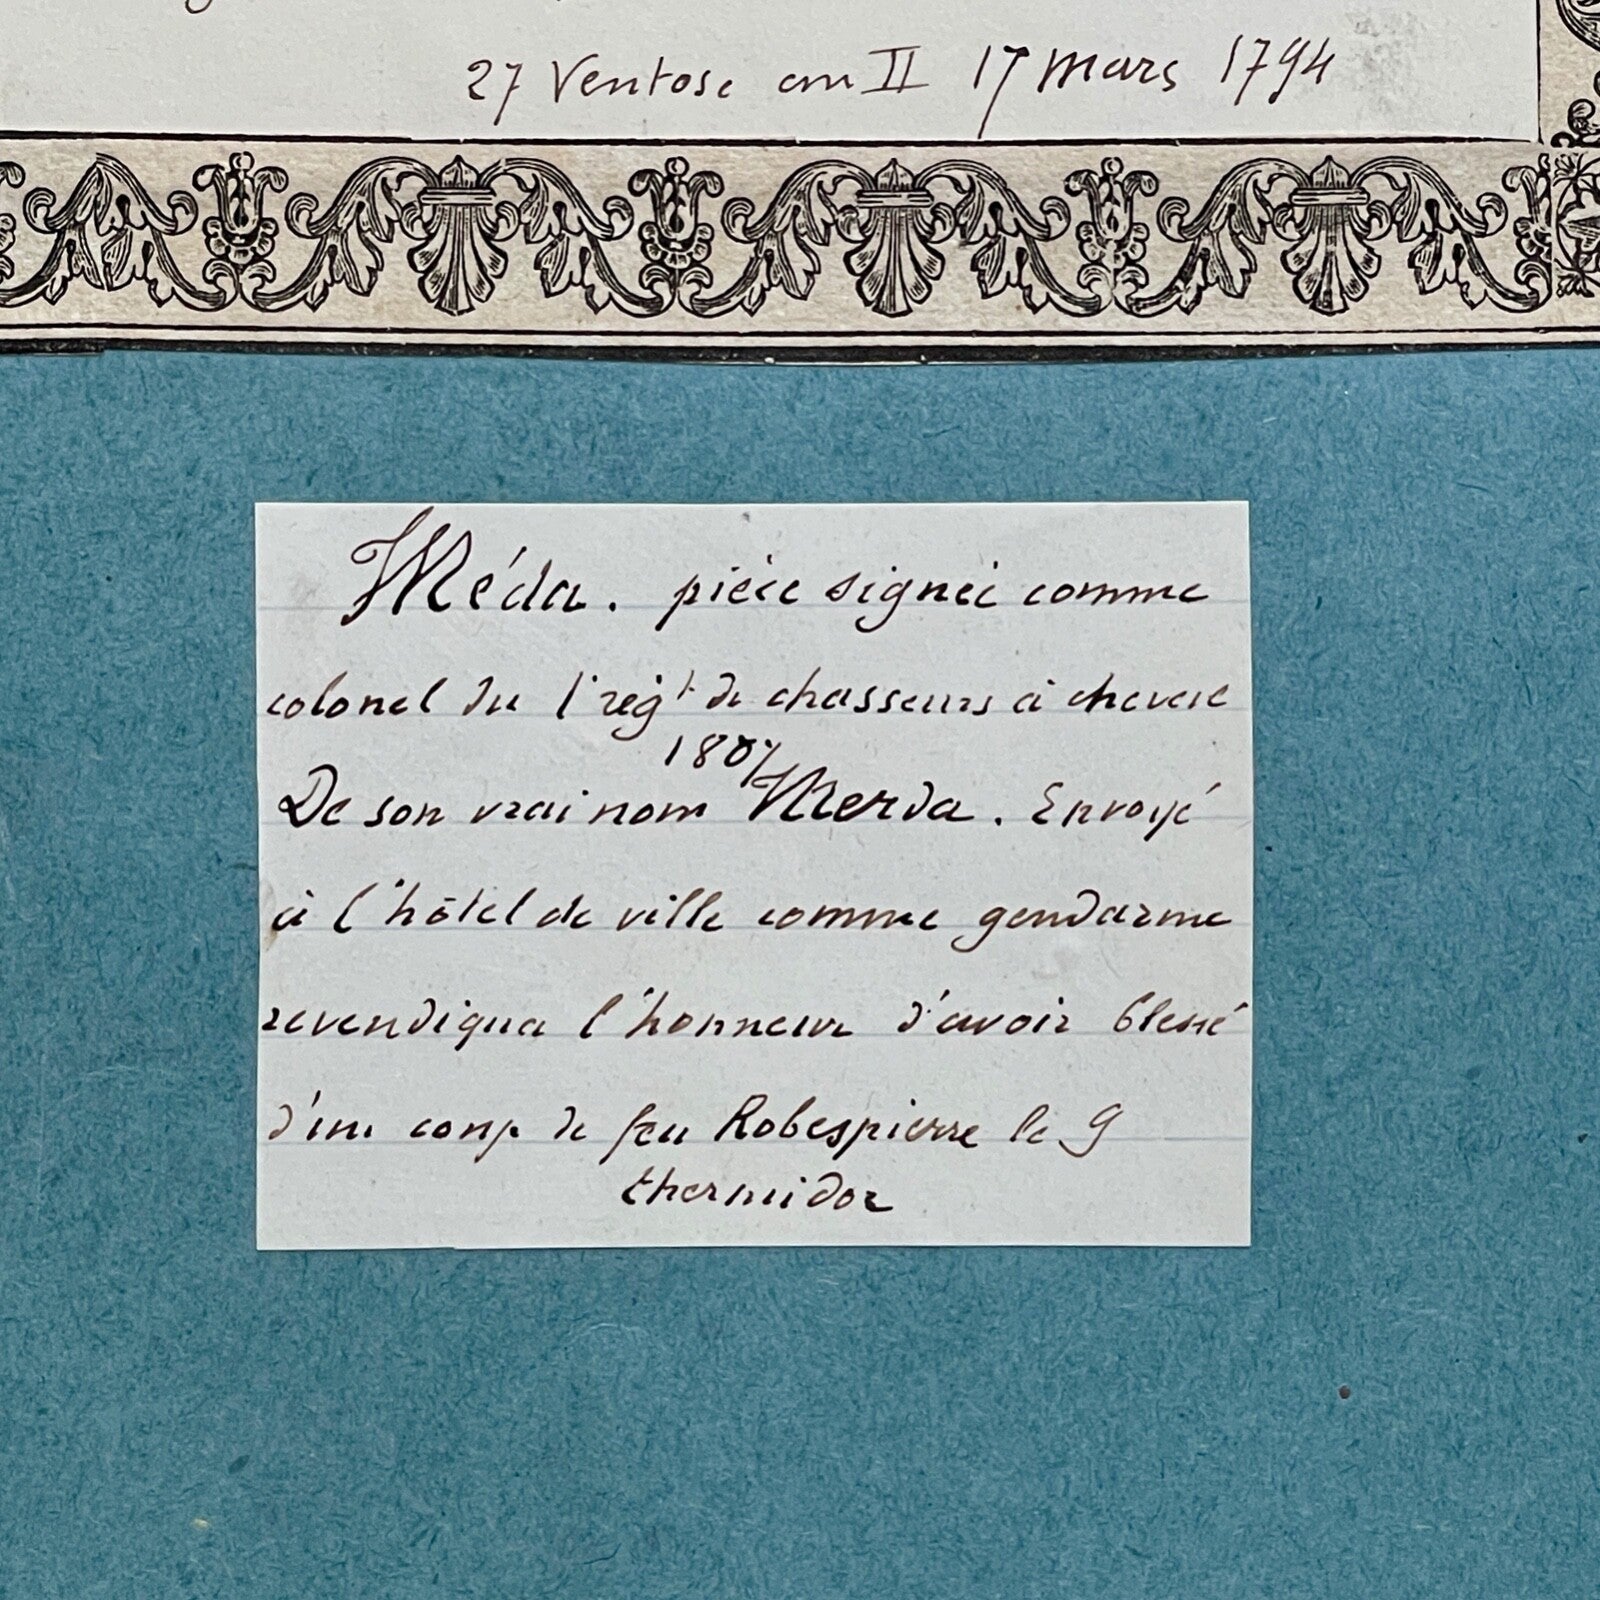 27 Ventose an II 17 mars 1794
Méda. pièce signée comme
colonel du 1 régt de chasseurs à cheval
1807
De son vrai nom Merda. Envoyé
à l'hôtel de ville comme gendarme
revendiqua l'honneur d'avoir blessé
d'un coup de feu Robespierre le 9
thermidor